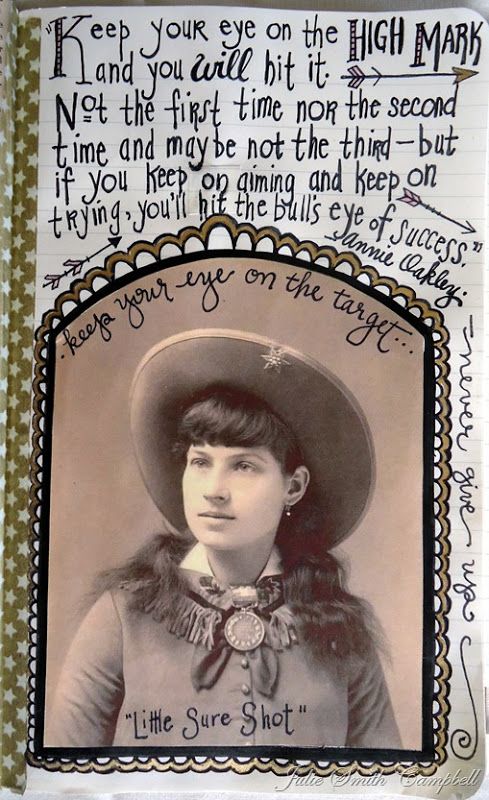 "Keep your eye on the HIGH MARK
and you will hit it.
Not the first time nor the second
time and maybe not the third – but
if you keep on aiming and keep on
trying, you'll hit the bull's eye of success."
Annie Oakley.
.keep your eye on the target...
– never give up
"Little Sure Shot"
Julie Smith Campbell